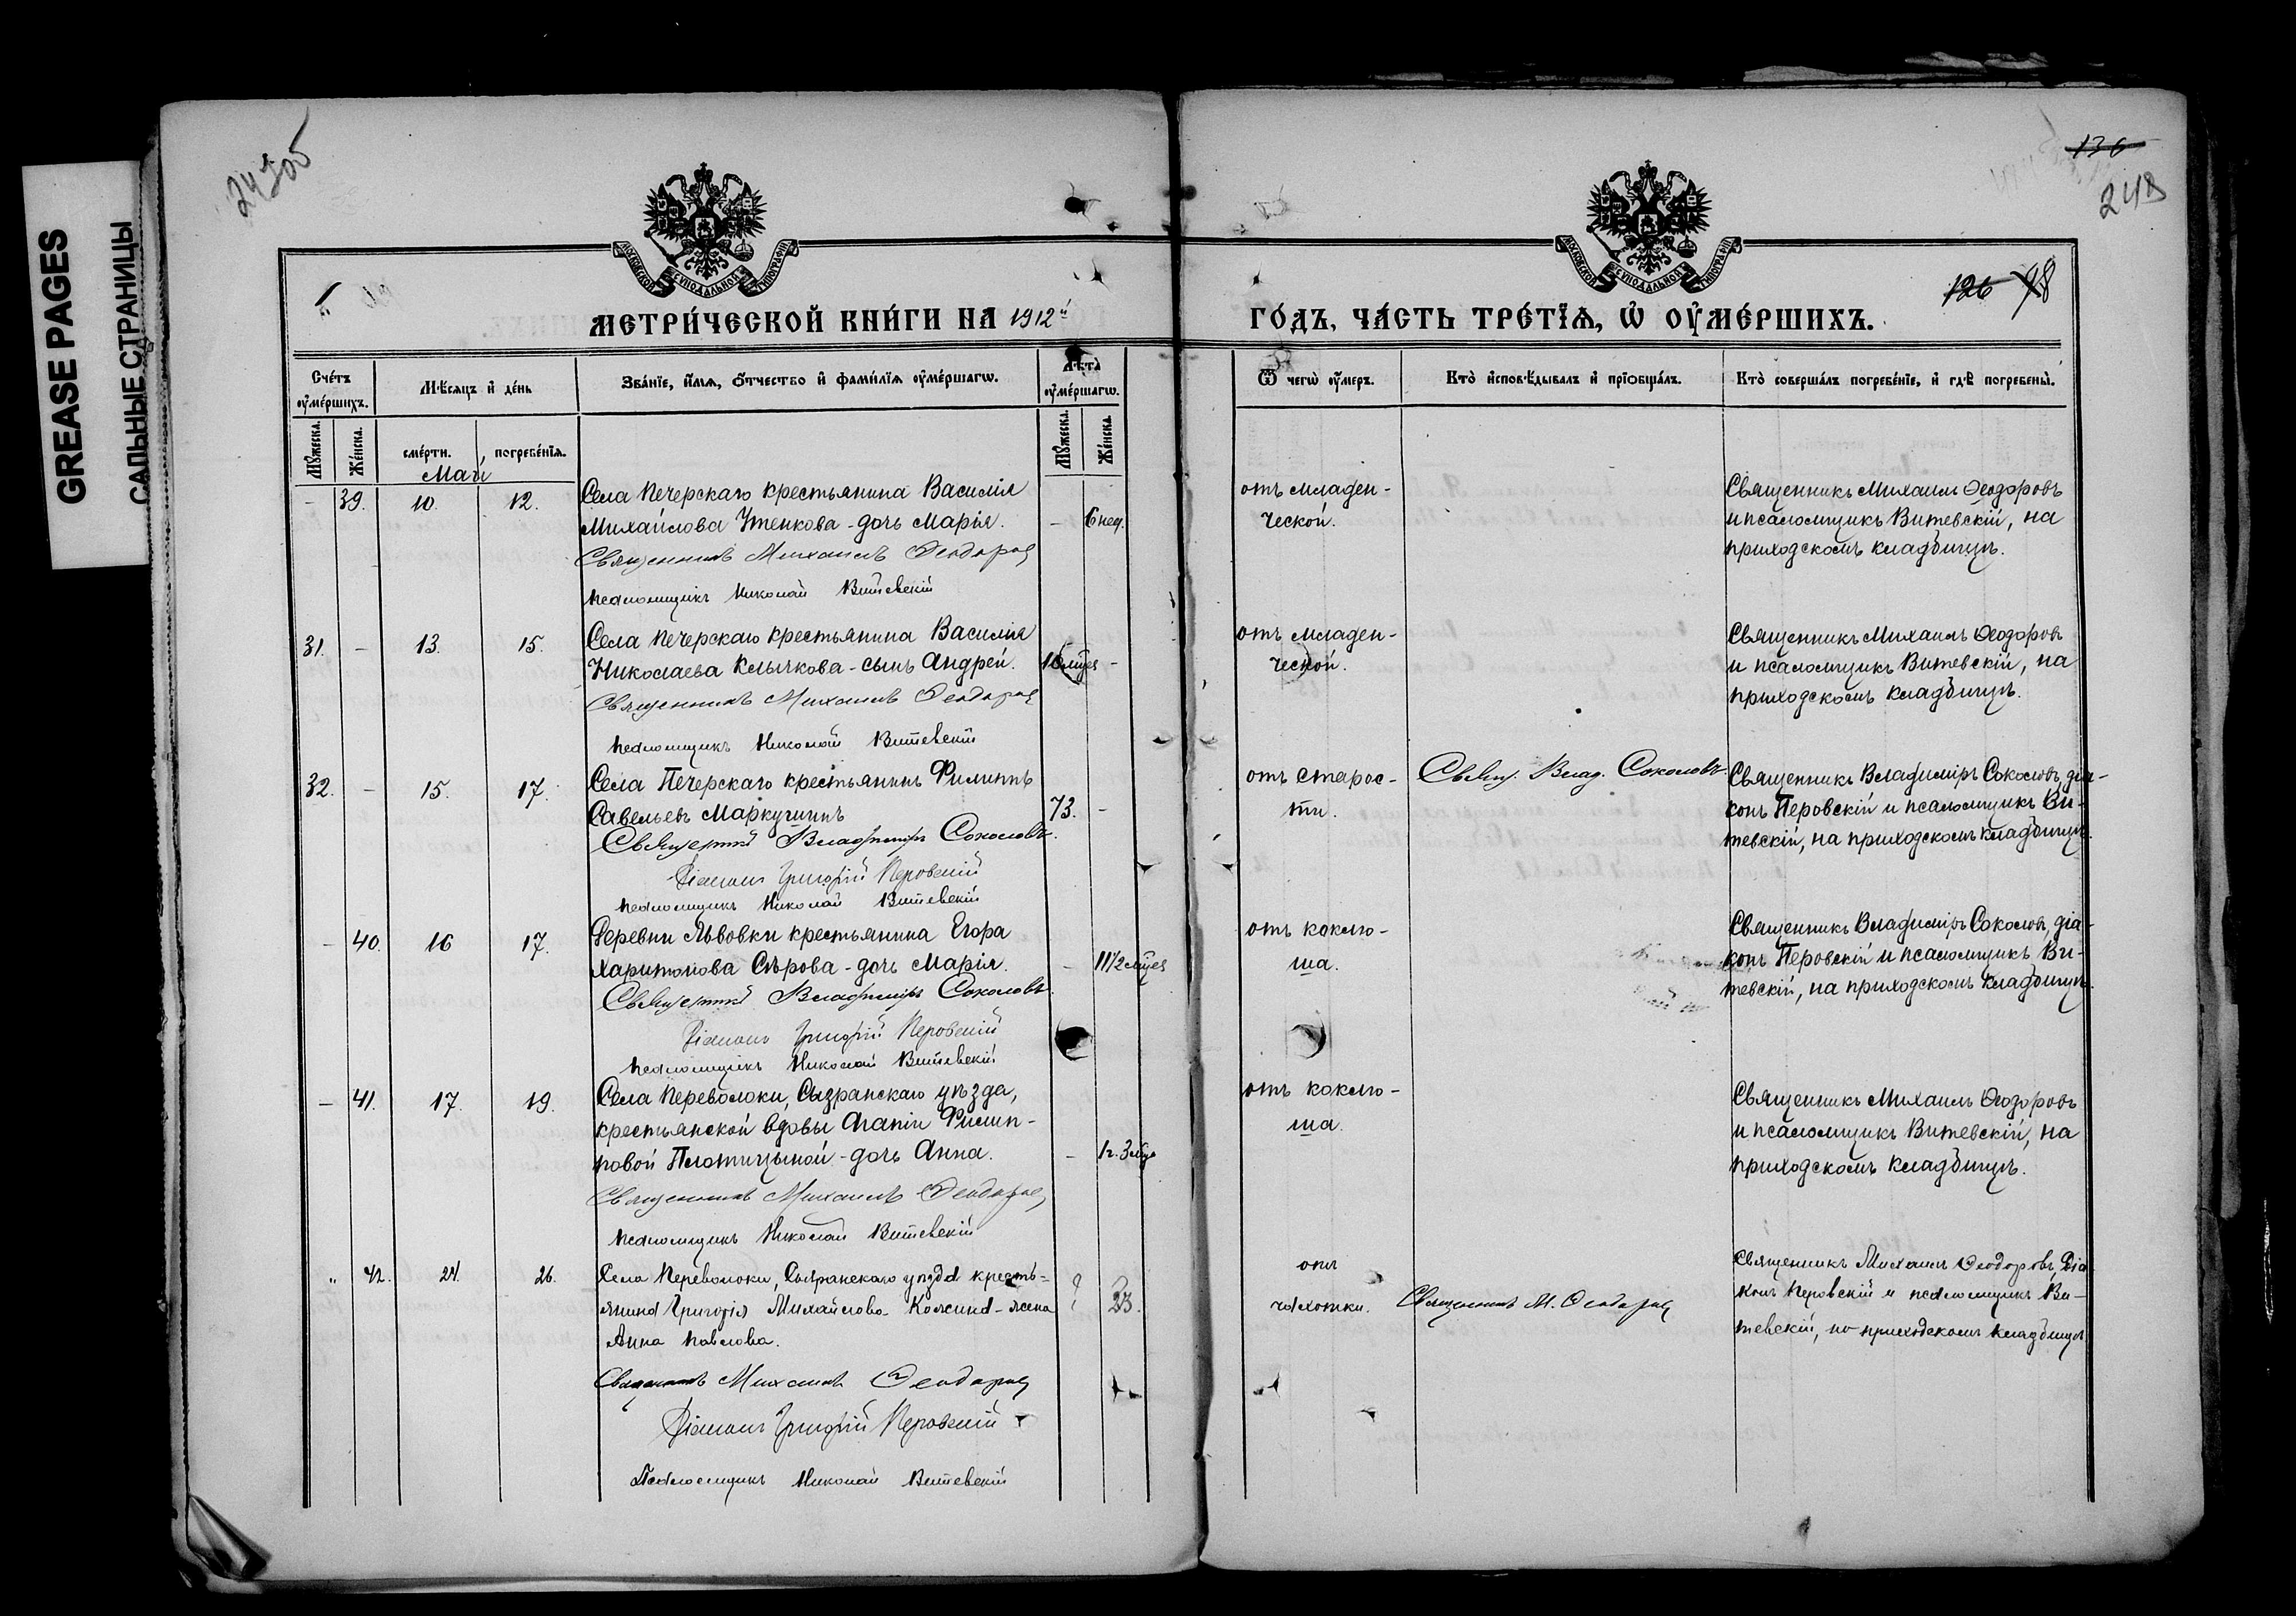 GREASE PAGES
САЛЬНЫЕ СТРАНИЦЫ
136
248
126 98
МОСКОВСКОЙ СѴНОДАЛЬНОЙ ТИПОГРАФІИ
МОСКОВСКОЙ СѴНОДАЛЬНОЙ ТИПОГРАФІИ
МЕТРИ́ЧЕСКОЙ КНИ́ГИ НА 1912й
ГО́ДЪ, ЧА́СТЬ ТРЕ́ТЇѦ, Ѡ҆ ОУ҆МЕ́РШИХЪ.
Сче́тъ оу҆ме́ршихъ.
Мѣ́сяцъ и҆ де́нь
Зва́нїе, и҆́мѧ, ѻ҆́тчество и҆ фами́лїѧ оу҆ме́ршагѡ.
Лѣ́та оу҆ме́ршагѡ.
Ѿ чегѡ̀ оу҆́меръ.
Кто̀ и҆сповѣ́дывалъ и҆ прїѡбща́лъ.
Кто̀ соверша́лъ погребе́нїе, и҆ гдѣ̀ погребены̀.
Мꙋ́жеска.
Же́нска.
сме́рти.
погребе́нїѧ.
Мꙋ́жеска.
Же́нска.
Май
- 39. 10. 12. Села Печерскаго крестьянина Василія
Михайлова Утенкова - дочь Марія. - 6 нед.
Священникъ Михаилъ Ѳеодоровъ
Псаломщикъ Николай Витевскій
отъ младен-
ческой.
Священникъ Михаилъ Ѳеодоровъ
и псаломщикъ Витевскій, на
приходскомъ кладбищѣ.
31. - 13. 15. Села Печерскаго крестьянина Василія
Николаева Клычкова - сынъ Андрей. -
Священникъ Михаилъ Ѳеодоровъ
Псаломщикъ Николай Витевскій
отъ младен-
ческой.
Священникъ Михаилъ Ѳеодоровъ
и псаломщикъ Витевскій, на
приходскомъ кладбищѣ.
32. - 15. 17. Села Печерскаго крестьянинъ Филиппъ
Савельевъ Маркушинъ 73. -
Священникъ Владиміръ Соколовъ.
Діаконъ Григорій Перовскій
Псаломщикъ Николай Витевскій
отъ старос-
ти.
Свящ. Влад. Соколовъ.
Священникъ Владиміръ Соколовъ, діа-
конъ Перовскій и псаломщикъ Ви-
тевскій, на приходскомъ кладбищѣ.
- 40. 16 17. Деревни Львовки крестьянина Егора
Харитонова Сѣрова - дочь Марія. - 11 1/2 мѣсц.
Священникъ Владиміръ Соколовъ.
Діаконъ Григорій Перовскій
Псаломщикъ Николай Витевскій
отъ коклю-
ша.
Священникъ Владиміръ Соколовъ, діа-
конъ Перовскій и псаломщикъ Ви-
тевскій, на приходскомъ кладбищѣ.
- 41. 17. 19. Села Переволоки, Сызранскаго уѣзда,
крестьянской вдовы Агапіи Филип-
повой Плотицыной - дочь Анна. - 1 г. 3 мѣс.
Священникъ Михаилъ Ѳеодоровъ
Псаломщикъ Николай Витевскій
отъ коклю-
ша.
Священникъ Михаилъ Ѳеодоровъ
и псаломщикъ Витевскій, на
приходскомъ кладбищѣ.
" 42. 24. 26. Села Переволоки, Сызранскаго уѣзда кресть-
янина Григорія Михайлова - жена 23.
Анна Павлова.
Священникъ Михаилъ Ѳеодоровъ
Діаконъ Григорій Перовскій
Псаломщикъ Николай Витевскій
отъ
чахотки.
Священникъ М. Ѳеодоровъ
Священникъ Михаилъ Ѳеодоровъ, Діа-
конъ Перовскій и псаломщикъ Ви-
тевскій, на приходскомъ кладбищѣ